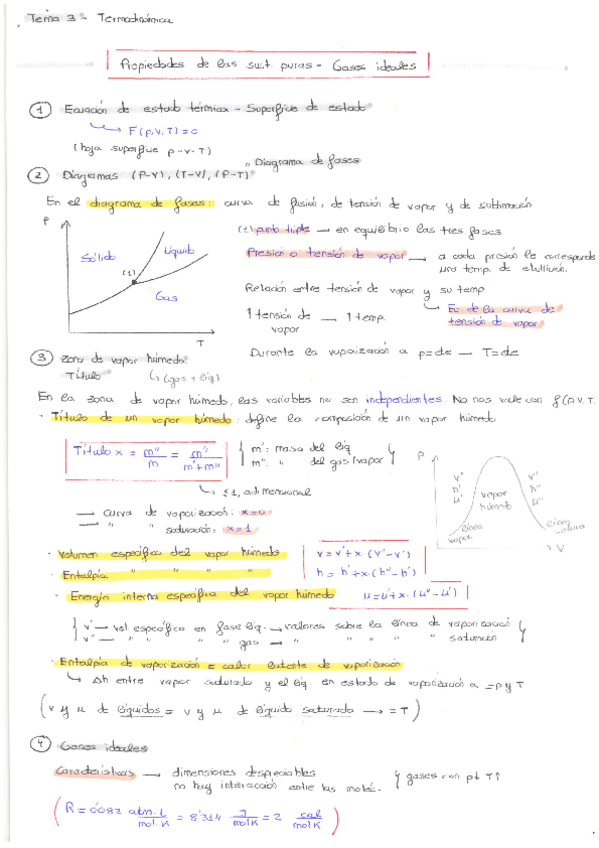 Tema 3 - Termodinámica
Propiedades de las sust. puras - Gases ideales
1 Ecuación de estado térmica - Superficie de estado
F(p,v,T)=0
(hoja superficie p-v-T)
"Diagrama de fases
2 Diagramas (P-V), (T-V), (P-T)"
En el diagrama de fases: curva de fusión, de tensión de vapor y de sublimación
P
Sólido
Líquido
(1)
Gas
T
(1) punto triple → en equilibrio las tres fases
Presión o tensión de vapor → a cada presión le corresponde
una temp. de ebullición.
Relación entre tensión de vapor y su temp
Ec. de la curva de
tensión de vapor
1 tensión de → 1 temp.
vapor
Durante la vaporización a p=cte → T=cte
3 Zona de vapor húmedo.
Título
(gas + líq)
En la zona de vapor húmedo, las variables no son independientes. No nos vale con f(p,v,T
· Título de un vapor húmedo: define la composición de un vapor húmedo
Título x = m''/m = m''/m'+m''
m': masa del líq
m'': " del gas/vapor
≤1, adimensional
→ curva de vaporización: x=0
→ " " saturación: x=1
P
v'
h'
u'
vapor
húmedo
v''
h''
u''
línea
vapor
línea
V
· Volumen específico del vapor húmedo
v = v'+x·(v''-v')
· Entalpía " " "
h = h'+x·(h''-h')
· Energía interna específica del vapor húmedo
u=u'+x·(u''-u')
v' → vol. específico en fase líq. → valores sobre la línea de vaporización
v'' → " " " gas → " " " " saturación
· Entalpía de vaporización = calor latente de vaporización
Δh entre vapor saturado y el líq en estado de vaporización a =p y T
(v y u de líquidos = v y u de líquido saturado → =T)
4 Gases ideales
Características → dimensiones despreciables
no hay interacción entre las moléc.
y gases con p↓ T↑
(R = 0'082 atm·l/mol·K = 8'314 J/mol K = 2 cal/mol K)